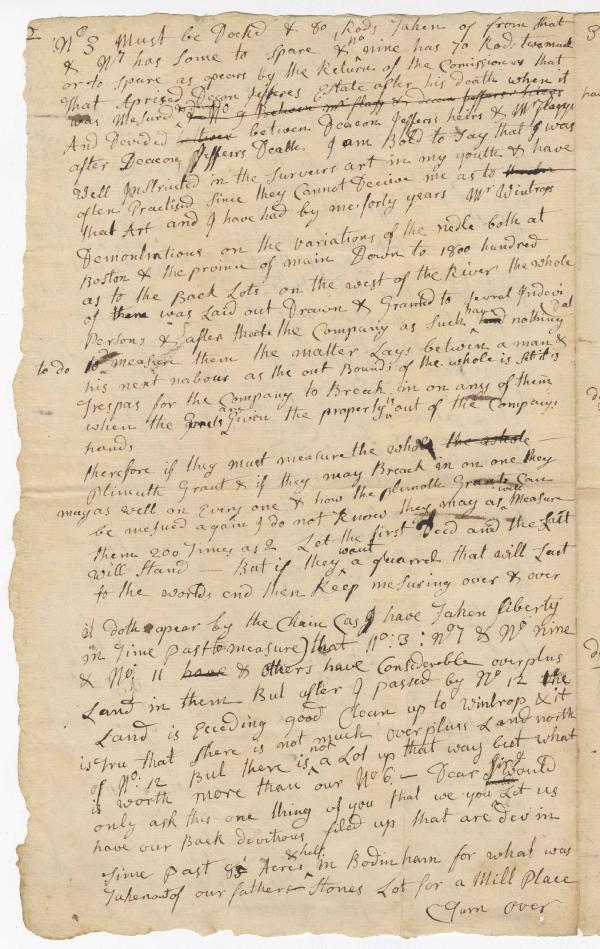 2
No 3 Must be Dockd & 80 Rods Taken of from that
& No 7 has Some to Spare & no nine has 70 Rods two much
or to Spare as apears by the Return of the Comissioners that
that Aprised Decon Jefferes Estate after his death when it
was Mesured
And Devided between Deacon Jefferis heirs & Mr Flaggs
after Deacon Jefferis Death. I am Bold to Say that I was
Well Instructed in the Surveirs art in my youth & have
often Practised Since they Cannot Decive me as to
that Art and I have had by me forty years Mr Wintrops
Demonstrations on the variations of the nedle both at
Boston & the provinc of main Down to 1800 hundred
as to the Back Lots on the west of the River the whole
of there was Laid out Drawn & Granted to Several Indevi
Persons & after that the Company as Such had nothing
to do to measure them the matter Lays between a man &
his next nabour as the out Bounds of the whole is Set it is
trespas for the Company to Break in on any of them
when the are Given the property is out of the Companys
hands
therefore if they must measure the whole the whole
Plimuth Grant & if they may Break in on one they
may as well on Every one & how the plimoth Grants Can
be mesued again I do not know they may as will Measure
them 200 Times as 2 Let the first Deed and the Last
will Stand — But if they want a quarrel that will Last
to the worlds end then Keep mesuring over & over
it doth apear by the Chain (as I have Taken liberty
in Time past to measure) that No: 3: No 7 & No Nine
& No: 11 have & others have Considerble overplus
Land in them But after I passed by No 12 the
Land is Eceeding good Clean up to Wintrop & it
is Tru that there is not much overpluss Land north
of No: 12 But there is not a Lot up that way but what
is worth more than our No 6. — Dear Sir would
only ask this one thing of you that we you Let us
have our Back devitions filed up that are Dev in
time past 83 Acres & half in Bodinham for what was
Taken out of our fathers Stones Lot for a Mill Place
Turn over